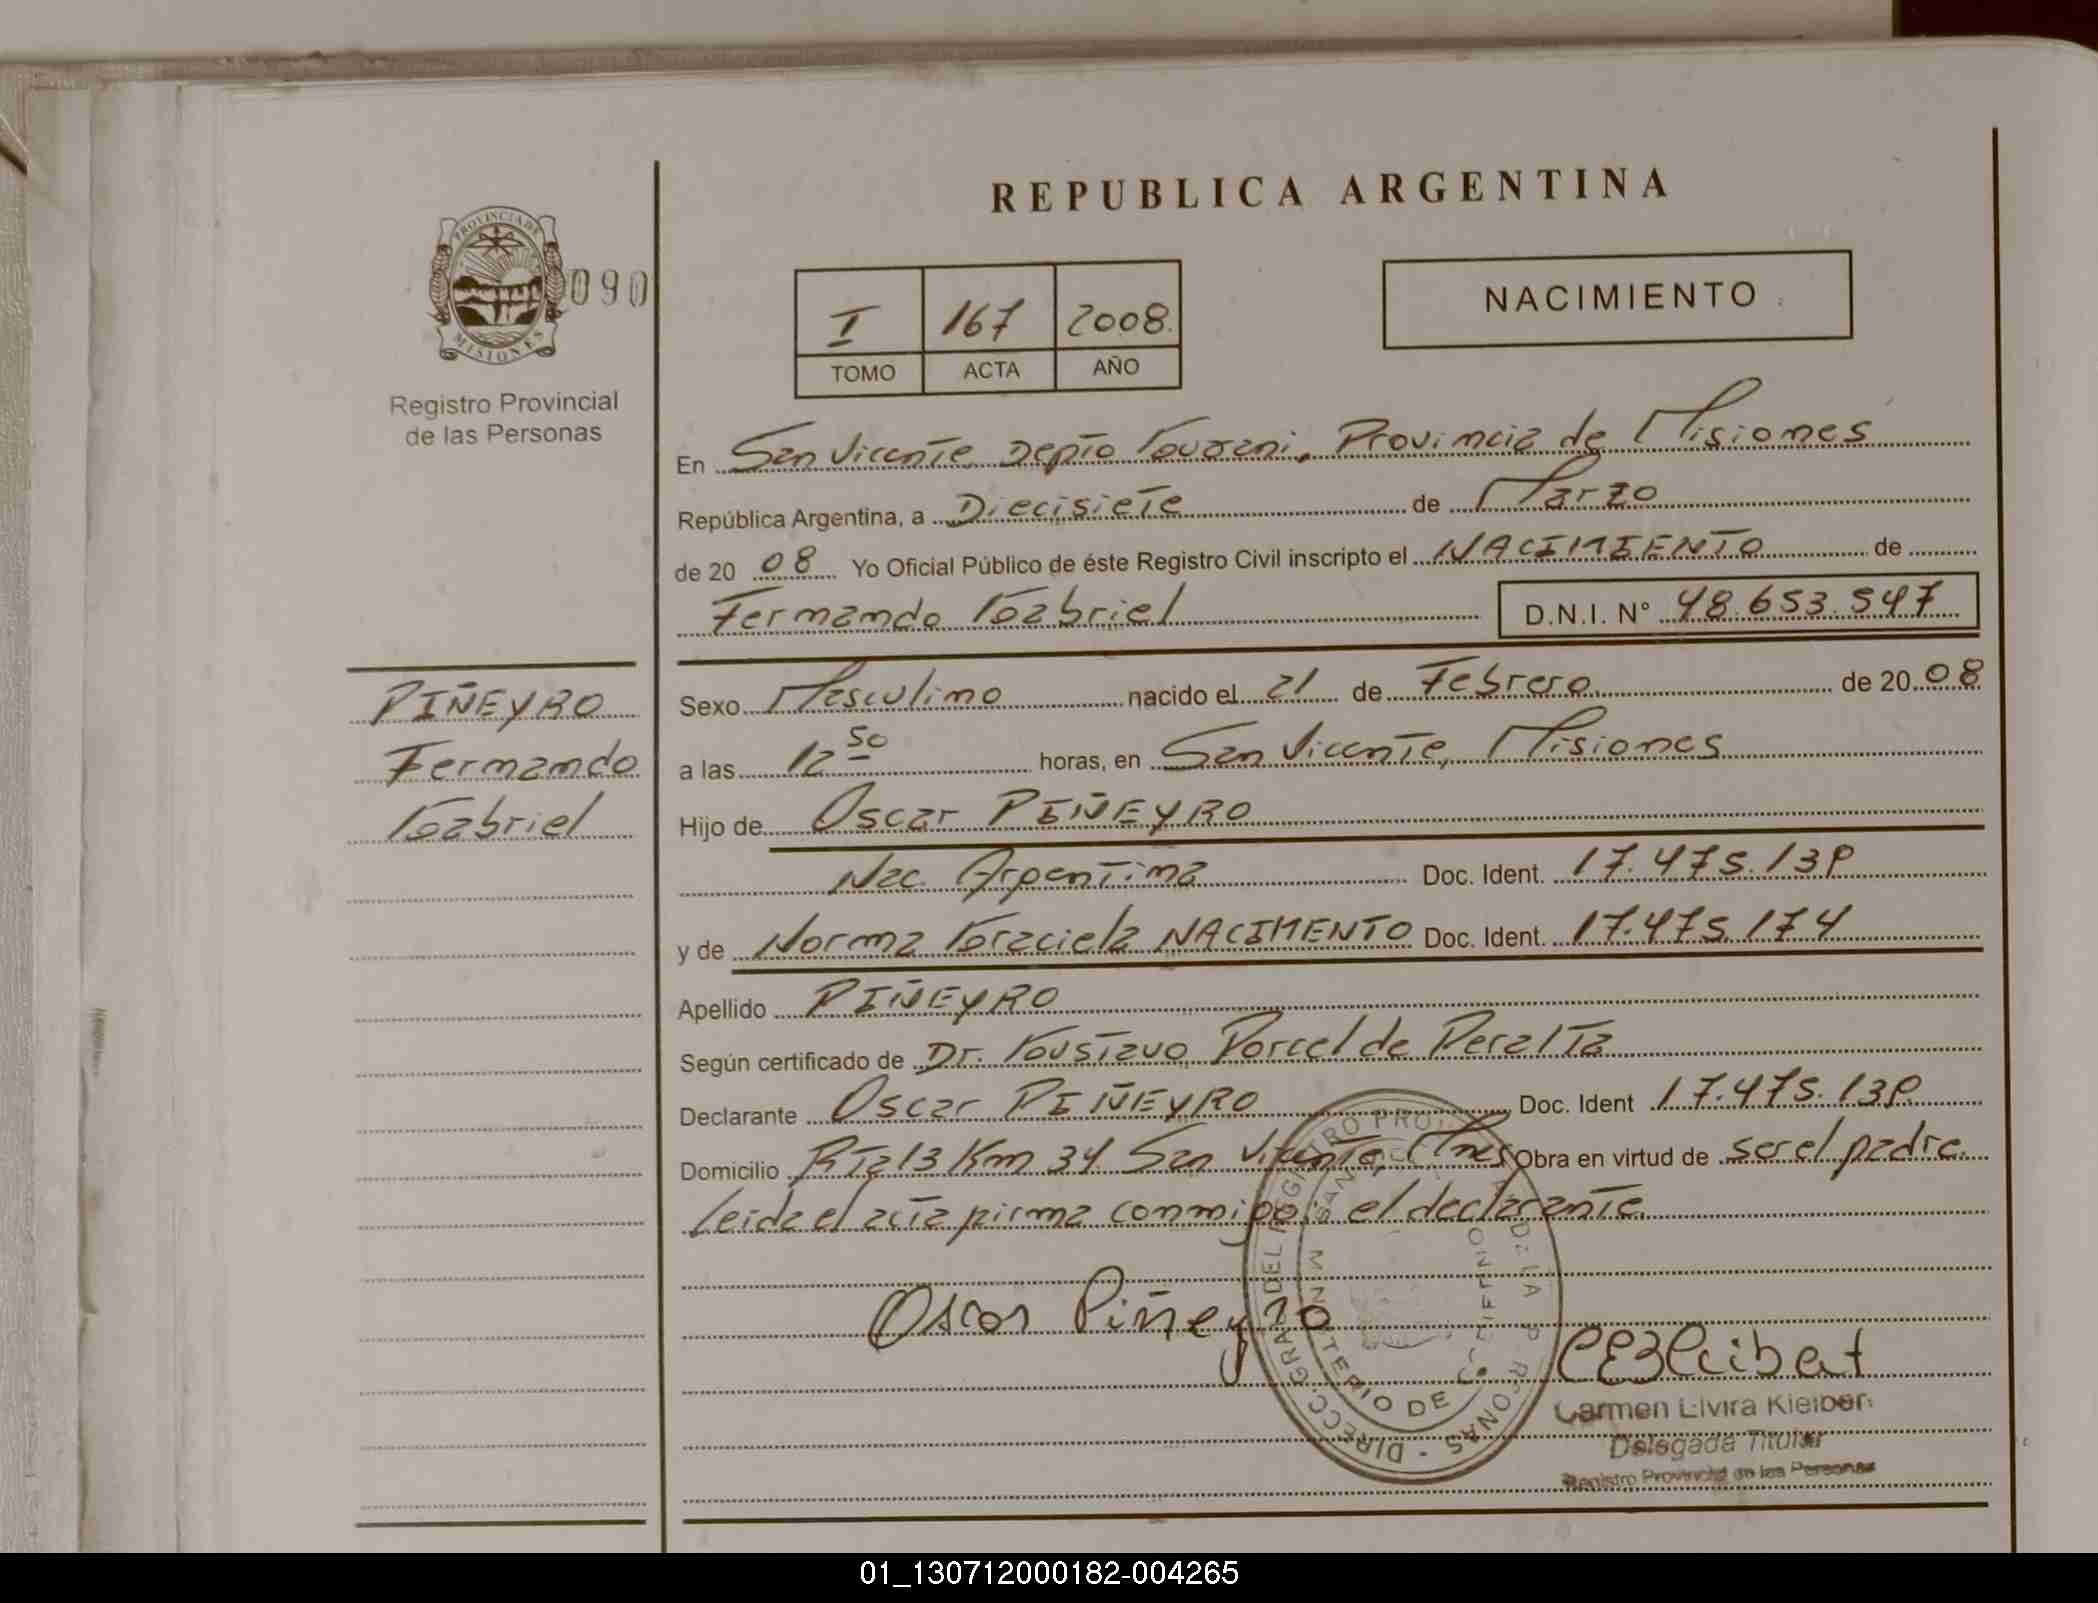 REPUBLICA ARGENTINA
PROVINCIA DE
MISIONES
090
Registro Provincial
de las Personas
I 167 2008.
TOMO ACTA AÑO
NACIMIENTO
En San Vicente Depto Guarani, Provincia de Misiones
República Argentina, a Diecisiete de Marzo
de 2008 Yo Oficial Público de éste Registro Civil inscripto el NACIMIENTO de
Fernando Gabriel D.N.I. Nº 48.653.547
PIÑEYRO
Fernando
Gabriel
Sexo Masculino nacido el 21 de Febrero de 2008
a las 12 50 horas, en San Vicente, Misiones
Hijo de Oscar PIÑEYRO
Nac. Argentina Doc. Ident. 17.475.139
y de Norma Graciela NACIMENTO Doc. Ident. 17.475.174
Apellido PIÑEYRO
Según certificado de Dr. Gustavo Porcel de Peralta
Declarante Oscar PIÑEYRO Doc. Ident 17.475.139
Domicilio Rta 13 Km 34 San Vicente, Mnes Obra en virtud de ser el padre.
leida el acta firma conmigo el declarante
Oscar Piñeyro
Carmen Elvira Kleiber
Delegada Titular
Registro Provincial de las Personas
01_130712000182-004265